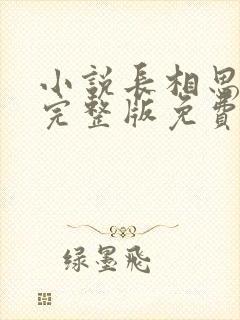 小説長相思
完整版免費
绿墨飛